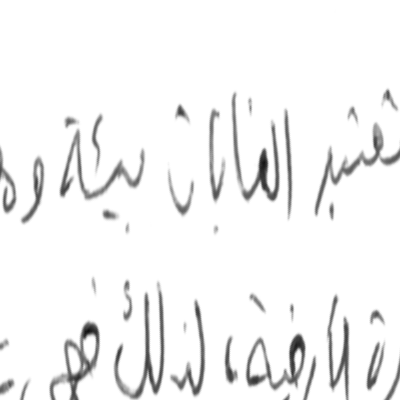 تعتبر الغابات بيئة
الأرضية، لذلك فهي